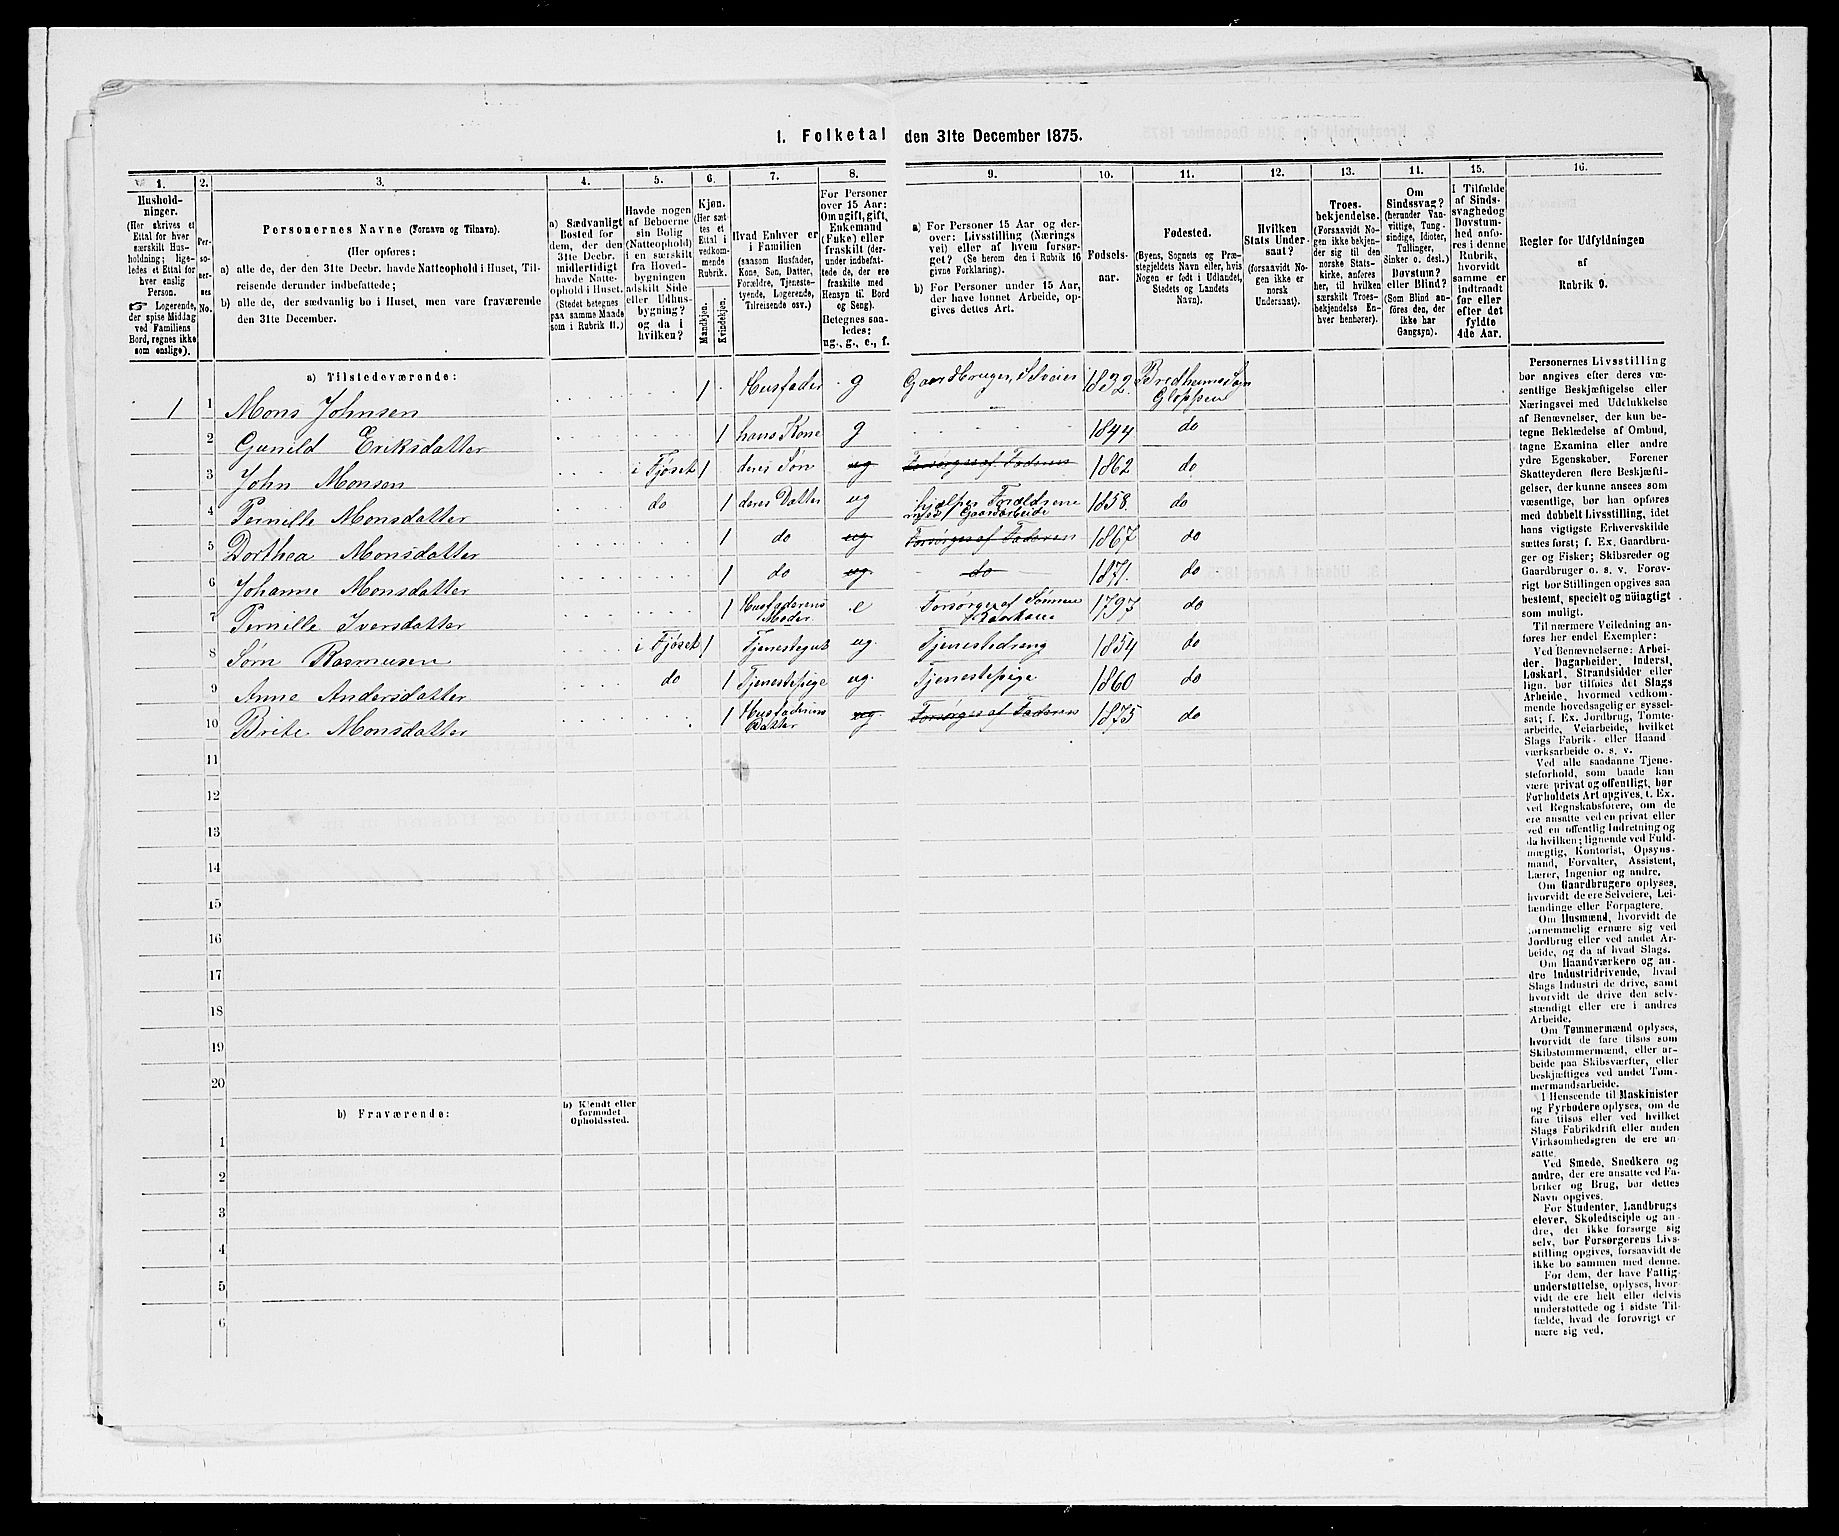 1. Folketal den 31te December 1875.
1. 2. 3. 4. 5. 6. 7. 8. 9. 10. 11. 12. 13. 11. 15. 16.
Hushold-
ninger.
(Her skrives et
Ettal for hver
særskilt Hus-
holdning; lige-
ledes et Ettal for
hver enslig
Person.
Logerende,
der spise Middag
ved Familiens
Bord, regnes ikke
som enslige).
Per-
so-
ner-
nes
No.
Personernes Navne (Fornavn og Tilnavn).
(Her opføres:
a) alle de, der den 31te Decbr. havde Natteophold i Huset, Til-
reisende derunder indbefattede;
b) alle de, der sædvanlig bo i Huset, men vare fraværende
den 31te December.
a) Sædvanligt
Bosted for
dem, der den
31te Decbr.
midlertidigt
havde Natte-
ophold i Huset.
(Stedet betegnes
paa samme Maade
som i Rubrik 11.)
Havde nogen
af Beboerne
sin Bolig
(Natteophold)
i en særskilt
fra Hoved-
bygningen
adskilt Side-
eller Udhus-
bygning?
og da i
hvilken?
Kjøn.
(Her sæt-
tes et
Ettal i
vedkom-
mende
Rubrik.
Mandkjøn.
Kvindekjøn.
Hvad Enhver er
i Familien
(saasom Husfader,
Kone, Søn, Datter,
Forældre, Tjeneste-
tyende, Logerende,
Tilreisende osv.)
For Personer
over 15 Aar:
Om ugift, gift,
Enkemand
(Enke) eller
fraskilt (der-
under indbefat-
tede de, der ere
fraskilte med
Hensyn til Bord
og Seng).
Betegnes saa-
ledes:
ug., g., e., f.
a) For Personer 15 Aar og der-
over: Livsstilling (Nærings
vei) eller af hvem forsør-
get? (Se herom den i Rubrik 16
givne Forklaring).
b) For Personer under 15 Aar,
der have lønnet Arbeide, op-
gives dettes Art.
Fødsels-
aar.
Fødested.
(Byens, Sognets og Præ-
stegjeldets Navn eller, hvis
Nogen er født i Udlandet,
Stedets og Landets
Navn).
Hvilken
Stats Under-
saat?
(forsaavidt No-
gen ikke er
norsk
Undersaat).
Troes-
bekjendelse.
(Forsaavidt No-
gen ikke bekjen-
der sig til den
norske Stats-
kirke, anføres
her, til hvilken
særskilt Troes-
bekjendelse En-
hver henhører).
Om
Sindssvag?
(herunder Van-
vittige, Tung-
sindige, Idioter,
Tullinger,
Sinker o. desl.)
Døvstum?
eller Blind?
(Som Blind an-
føres den, der
ikke har
Gangsyn).
I Tilfælde
af Sinds-
svaghed og
Døvstum-
hed anfø-
res i denne
Rubrik,
hvorvidt
samme er
indtraadt
før eller
efter det
fyldte
4de Aar.
Regler for Udfyldningen
af
Rubrik 9.
a) Tilstedeværende:
1 1 Mons Johnsen 1 Husfader g Gaardbruger, Selveier 1832 Bredheims Sogn Gloppen
2 Gunild Eriksdatter 1 hans Kone g 1844 do
3 John Monsen i Fjøset 1 deres Søn ug Forsørges af Faderen 1862 do
4 Pernille Monsdatter do 1 deres Datter ug hjælper Forældrene med Gaardarbeide 1858. do
5 Dorthea Monsdatter 1 do ug Forsørges af Faderen 1867 do
6 Johanne Monsdatter 1 do ug do 1871. do
7 Pernille Iversdatter 1 Husfaderens Moder e Forsørges af Sønnen 1793 do
8 Sørn Rasmusen i Fjøset 1 Tjenestegut ug. Tjenestedreng 1854 do
9 Anne Andersdatter do 1 Tjenestepige ug. Tjenestepige 1860 do
10 Brite Monsdatter 1 Husfaderens Datter ug. Forsørges af Faderen 1875 do
11
12
13
14
15
16
17
18
19
20
b) Fraværende:
b) Kjendt eller
formodet
Opholdssted.
1
2
3
4
5
6
Personernes Livsstilling
bør angives efter deres væ-
sentlige Beskjæftigelse eller
Næringsvei med Udelukkelse
af Benævnelser, der kun be-
tegne Beklædelse af Ombud,
tagne Examina eller andre
ydre Egenskaber. Forener
Skatteyderen flere Beskjæfti-
gelser, der kunne ansees som
væsentlige, bør han opføres
med dobbelt Livsstilling, idet
hans vigtigste Erhvervskilde
sættes først; f. Ex. Gaardbru-
ger og Fisker; Skibsreder og
Gaardbruger o. s. v. Forøv-
rigt bør Stillingen opgives saa
bestemt, specielt og nøiagtigt
som muligt.
Til nærmere Veiledning an-
føres her endel Exempler:
Ved Benævnelserne: Arbei-
der, Dagarbeider, Inderst,
Løskarl, Strandsidder eller
lign. bør tilføies det Slags
Arbeide, hvormed vedkom-
mende hovedsagelig er syssel-
sat; f. Ex. Jordbrug, Tømte-
arbeide, Veiarbeide, hvilket
Slags Fabrik- eller Haand
værksarbeide o. s. v.
Ved alle saadanne Tjene-
steforhold, som baade kan
være privat og offentligt, bør
Forholdets Art opgives, t. Ex.
ved Regnskabsførere, om de
ere ansatte ved en privat eller
ved en offentlig Indretning og
da hvilken; lignende ved Fuld-
mægtig, Kontorist, Opsyns-
mand, Forvalter, Assistent,
Lærer, Ingeniør og andre.
Om Gaardbrugere oplyses,
hvorvidt de ere Selveiere, Lei-
lændinge eller Forpagtere.
Om Husmænd, hvorvidt de
fornemmelig ernære sig ved
Jordbrug eller ved andet Ar-
beide, og da af hvad Slags.
Om Haandværkere og an-
dre Industridrivende, hvad
Slags Industri de drive, samt
hvorvidt de drive den selv-
stændigt eller ere i andres
Arbeide.
Om Tømmermænd oplyses,
hvorvidt de fare tilsøs som
Skibstømmermænd, eller ar-
beide paa Skibsværfter, eller
beskjæftiges ved andet Tøm-
mermandsarbeide.
I Henseende til Maskinister
og Fyrbødere oplyses, om de
fare tilsøs eller ved hvilket
Slags Fabrikdrift eller anden
Virksomhedsgren de ere an-
satte.
Ved Smede, Snedkere og
andre, der ere ansatte ved Fa-
briker og Brug, bør dettes
Navn opgives.
For Studenter, Landbrugs
elever, Skoledisciple og an-
dre, der ikke forsørge sig
selv, bør Forsørgerens Livs-
stilling opgives, forsaavidt de
ikke bo sammen med denne.
For dem, der have Fattig-
understøttelse, oplyses, hvor-
vidt de ere helt eller delvis
understøttede og i sidste Til-
fælde, hvad de forøvrigt er
nære sig ved.